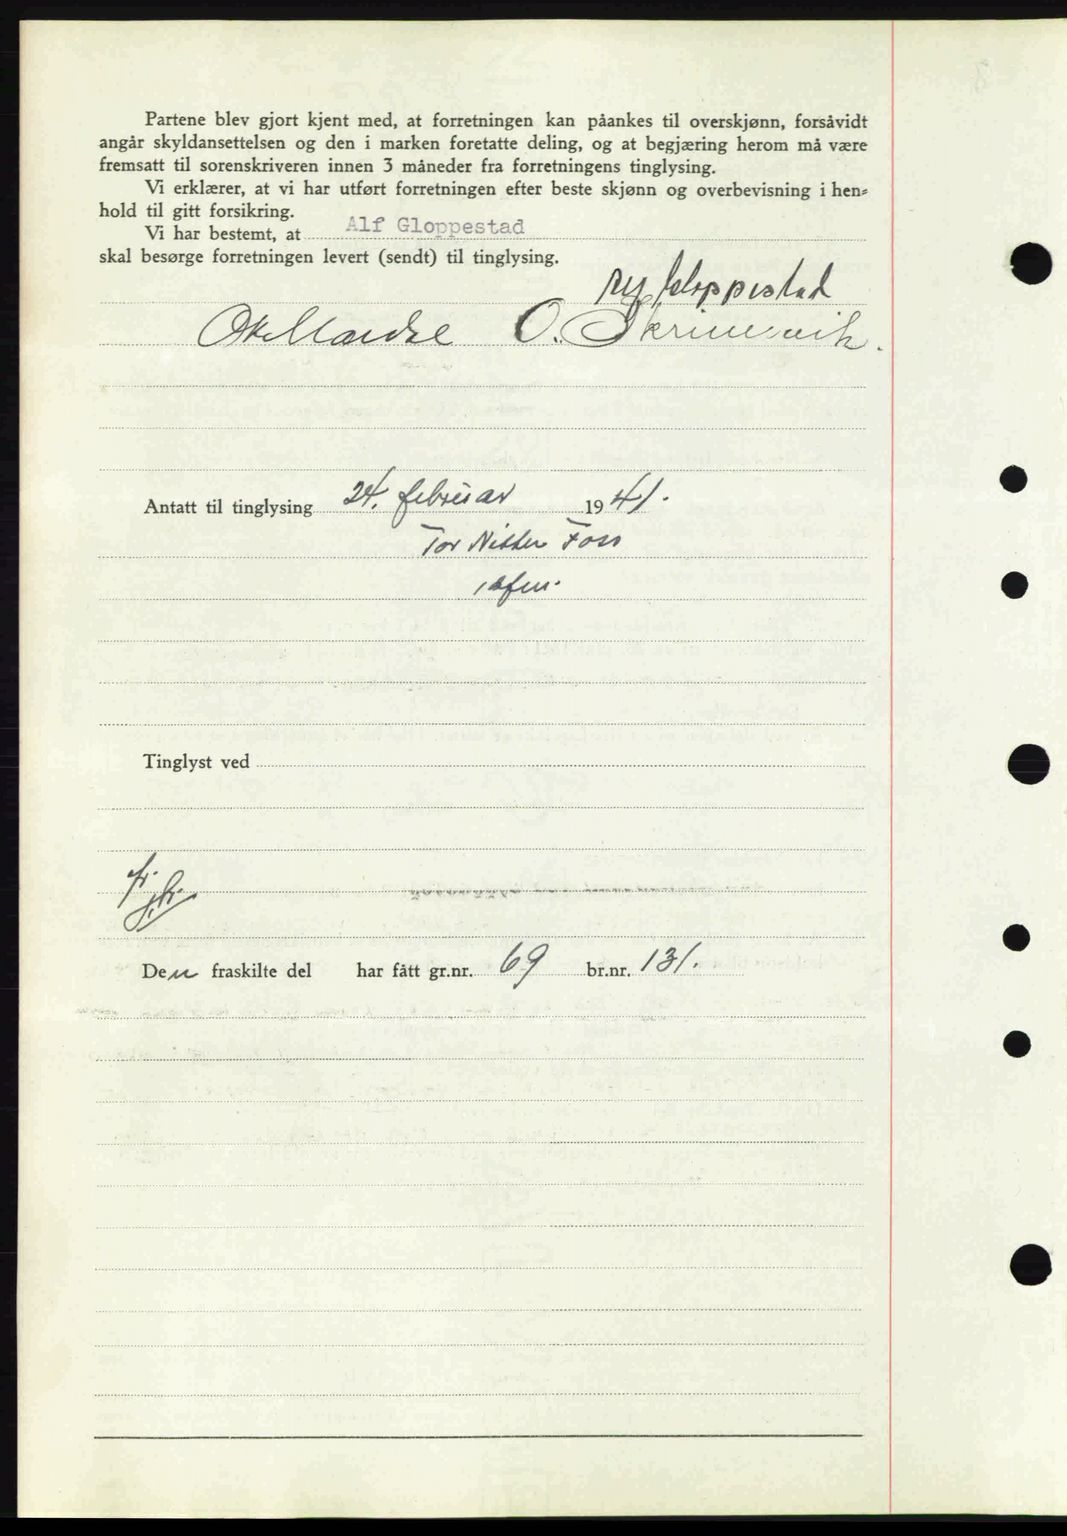 Partene blev gjort kjent med, at forretningen kan påankes til overskjønn, forsåvidt
angår skyldansettelsen og den i marken foretatte deling, og at begjæring herom må være
fremsatt til sorenskriveren innen 3 måneder fra forretningens tinglysing.
Vi erklærer, at vi har utført forretningen efter beste skjønn og overbevisning i hen=
hold til gitt forsikring.
Vi har bestemt, at Alf Gloppestad
skal besørge forretningen levert (sendt) til tinglysing.
Gloppestad
O. Skrimsvik.
Antatt til tinglysing 24. februar 1941.
Tor Foss
Tinglyst ved
Den fraskilte del har fått gr.nr. 69 br.nr. 131.